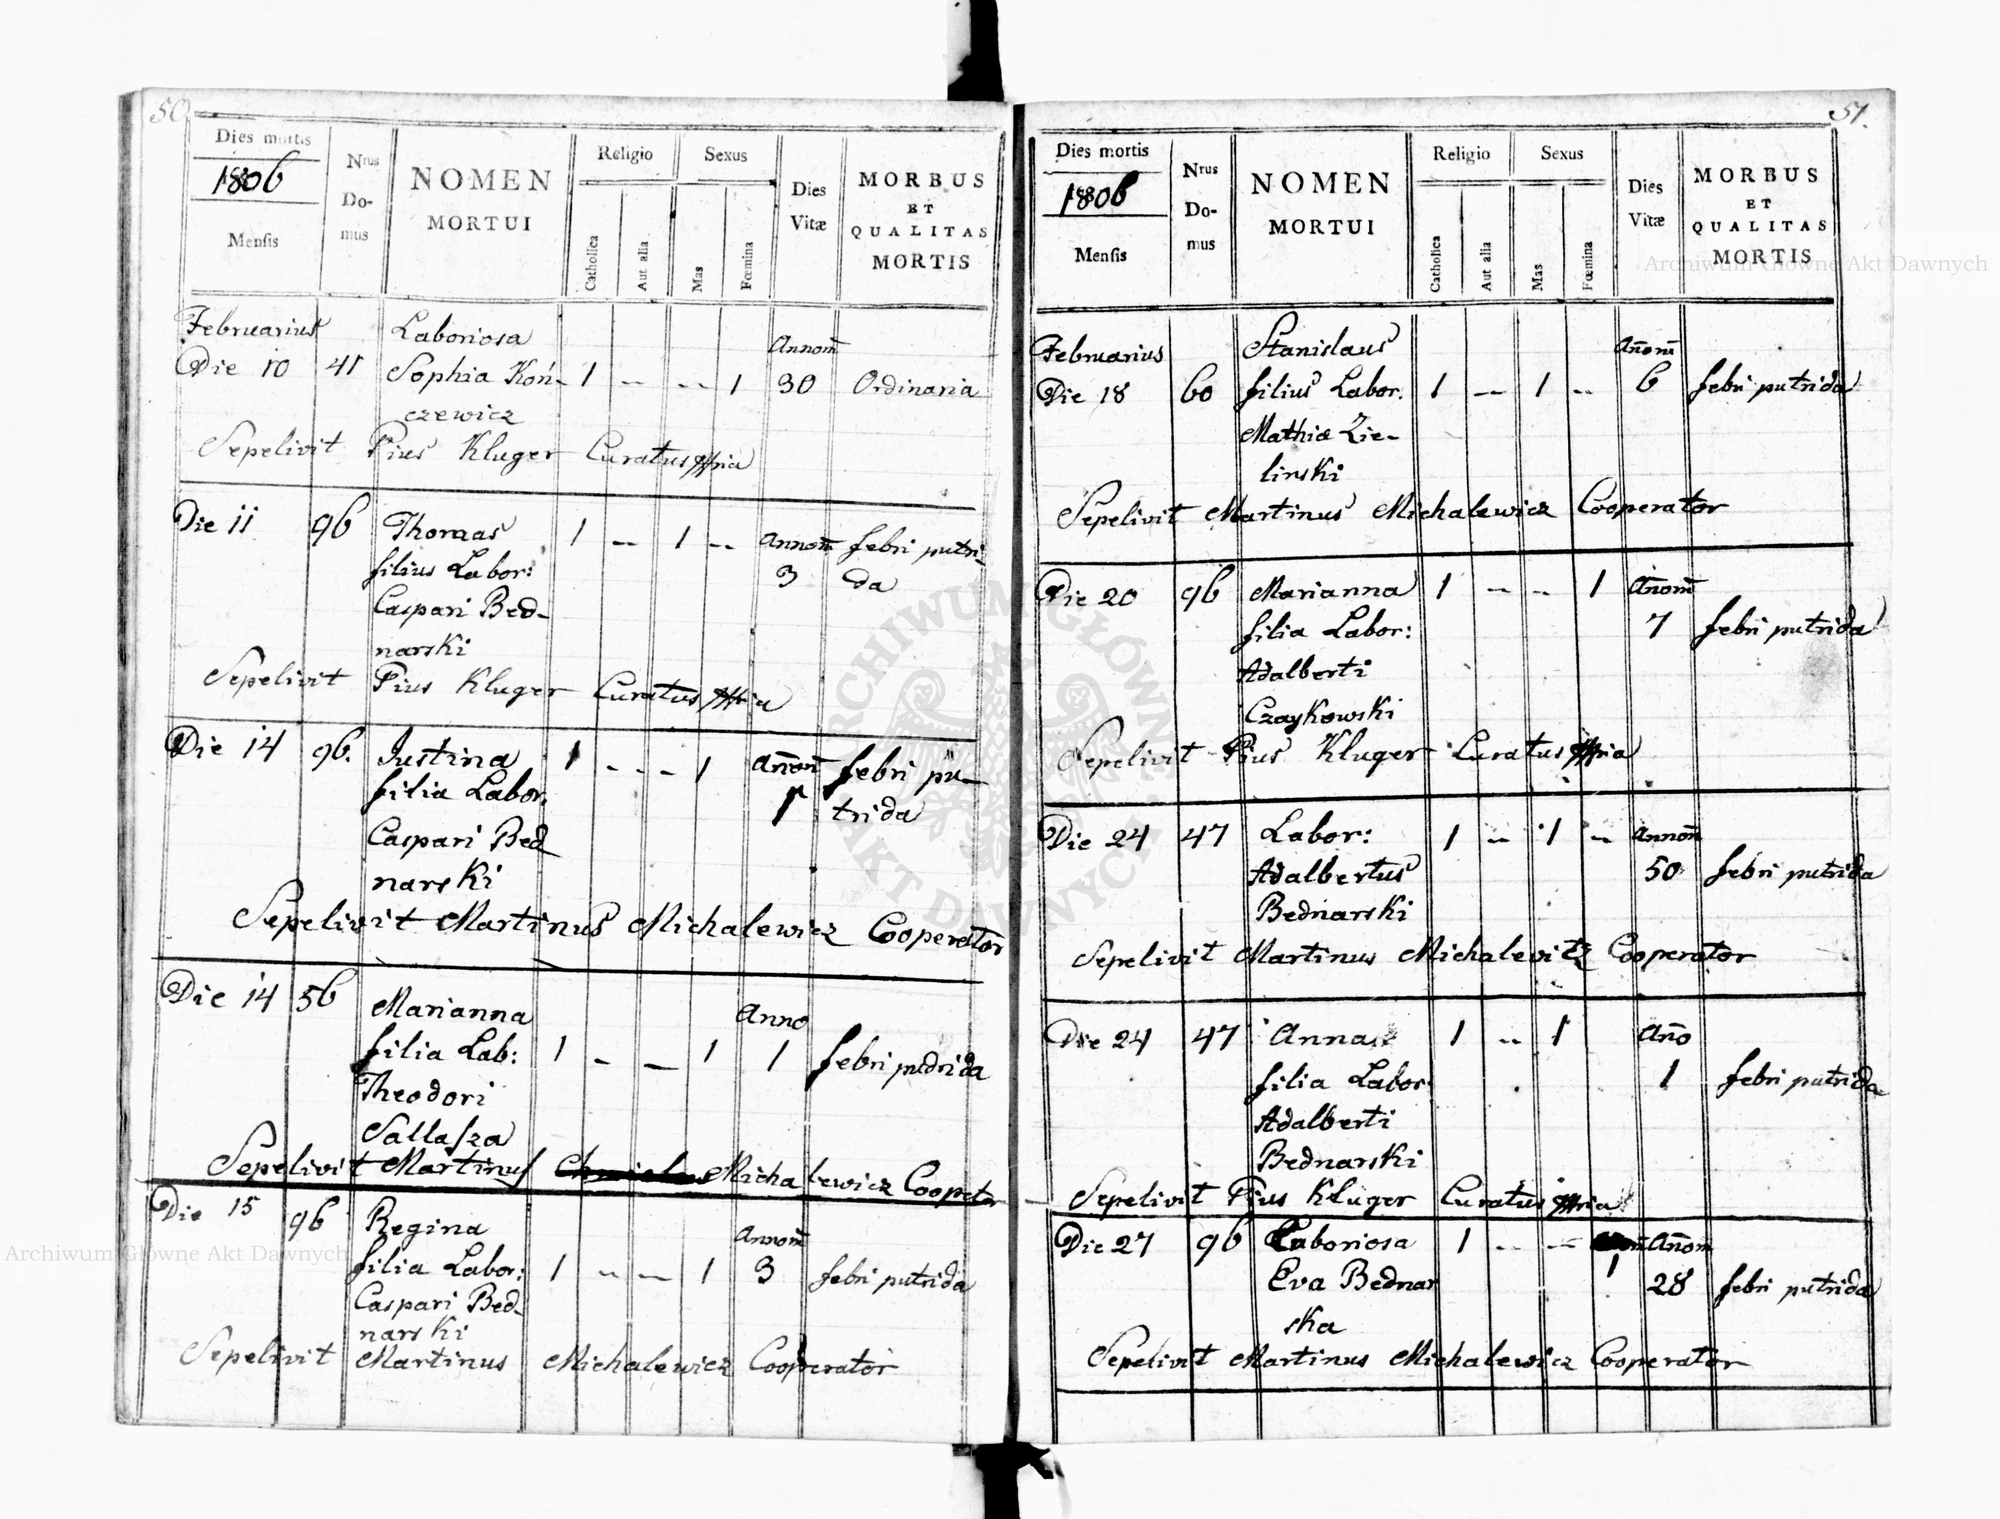 50.
Dies mortis
1806
Mensis
Nrus
Do-
mus
NOMEN
MORTUI
Religio
Catholica
Aut alia
Sexus
Mas
Fœmina
Dies
Vitæ
MORBUS
ET
QUALITAS
MORTIS
Februarius Laboriosa Annom̄
Die 10 41 Sophia Koń- 1 -- -- 1 30 Ordinaria
czewicz
Sepelivit Pius Kluger Curatus
Die 11 96 Thomas 1 -- 1 -- Annom̄ febri putri-
filius Labor: 3 da
Caspari Bed-
narski
Sepelivit Pius Kluger Curatus
Die 14 96. Justina 1 - - - 1 Añom̄ febri pu-
filia Labor. trida
Caspari Bed
narski
Sepelivit Martinus Michalewicz Cooperator
Die 14 56 Marianna Anno
filia Lab: 1 - - 1 1 febri pudrida
Theodori
Sallasza
Sepelivit Martinus Michalewicz
Die 15 96 Regina Annom̄
filia Labor: 1 -- -- 1 3 febri putrida
Caspari Bed-
narski
Sepelivit Martinus Michalewicz Cooperator
51.
Dies mortis
1806
Mensis
Nrus
Do-
mus
NOMEN
MORTUI
Religio
Catholica
Aut alia
Sexus
Mas
Fœmina
Dies
Vitæ
MORBUS
ET
QUALITAS
MORTIS
Februarius Stanislaus Añom̄
Die 18 60 filius Labor. 1 -- 1 -- 6 febri putrida
Mathiæ Zie-
linski
Sepelivit Martinus Michalewicz Cooperator
Die 20 96 Marianna 1 -- -- 1 Añom̄
filia Labor: 7 febri putrida
Adalberti
Czaykowski
Sepelivit Pius Kluger Curatus
Die 24 47 Labor: 1 -- 1 -- Annom̄
Adalbertus 50 febri putrida
Bednarski
Sepelivit Martinus Michalevitz Cooperator
Die 24 47 Anna 1 -- 1 Año
filia Labor: 1 febri putrida
Adalberti
Bednarski
Sepelivit Pius Kluger Curatus
Die 27 96 Laboriosa 1 -- -- Añom̄
Eva Bednar 1 28 febri putrida
ska
Sepelivit Martinus Michalewicz Cooperator
Archiwum Główne Akt Dawnych
Archiwum Główne Akt Dawnych
ARCHIWUM GŁÓWNE
AKT DAWNYCH